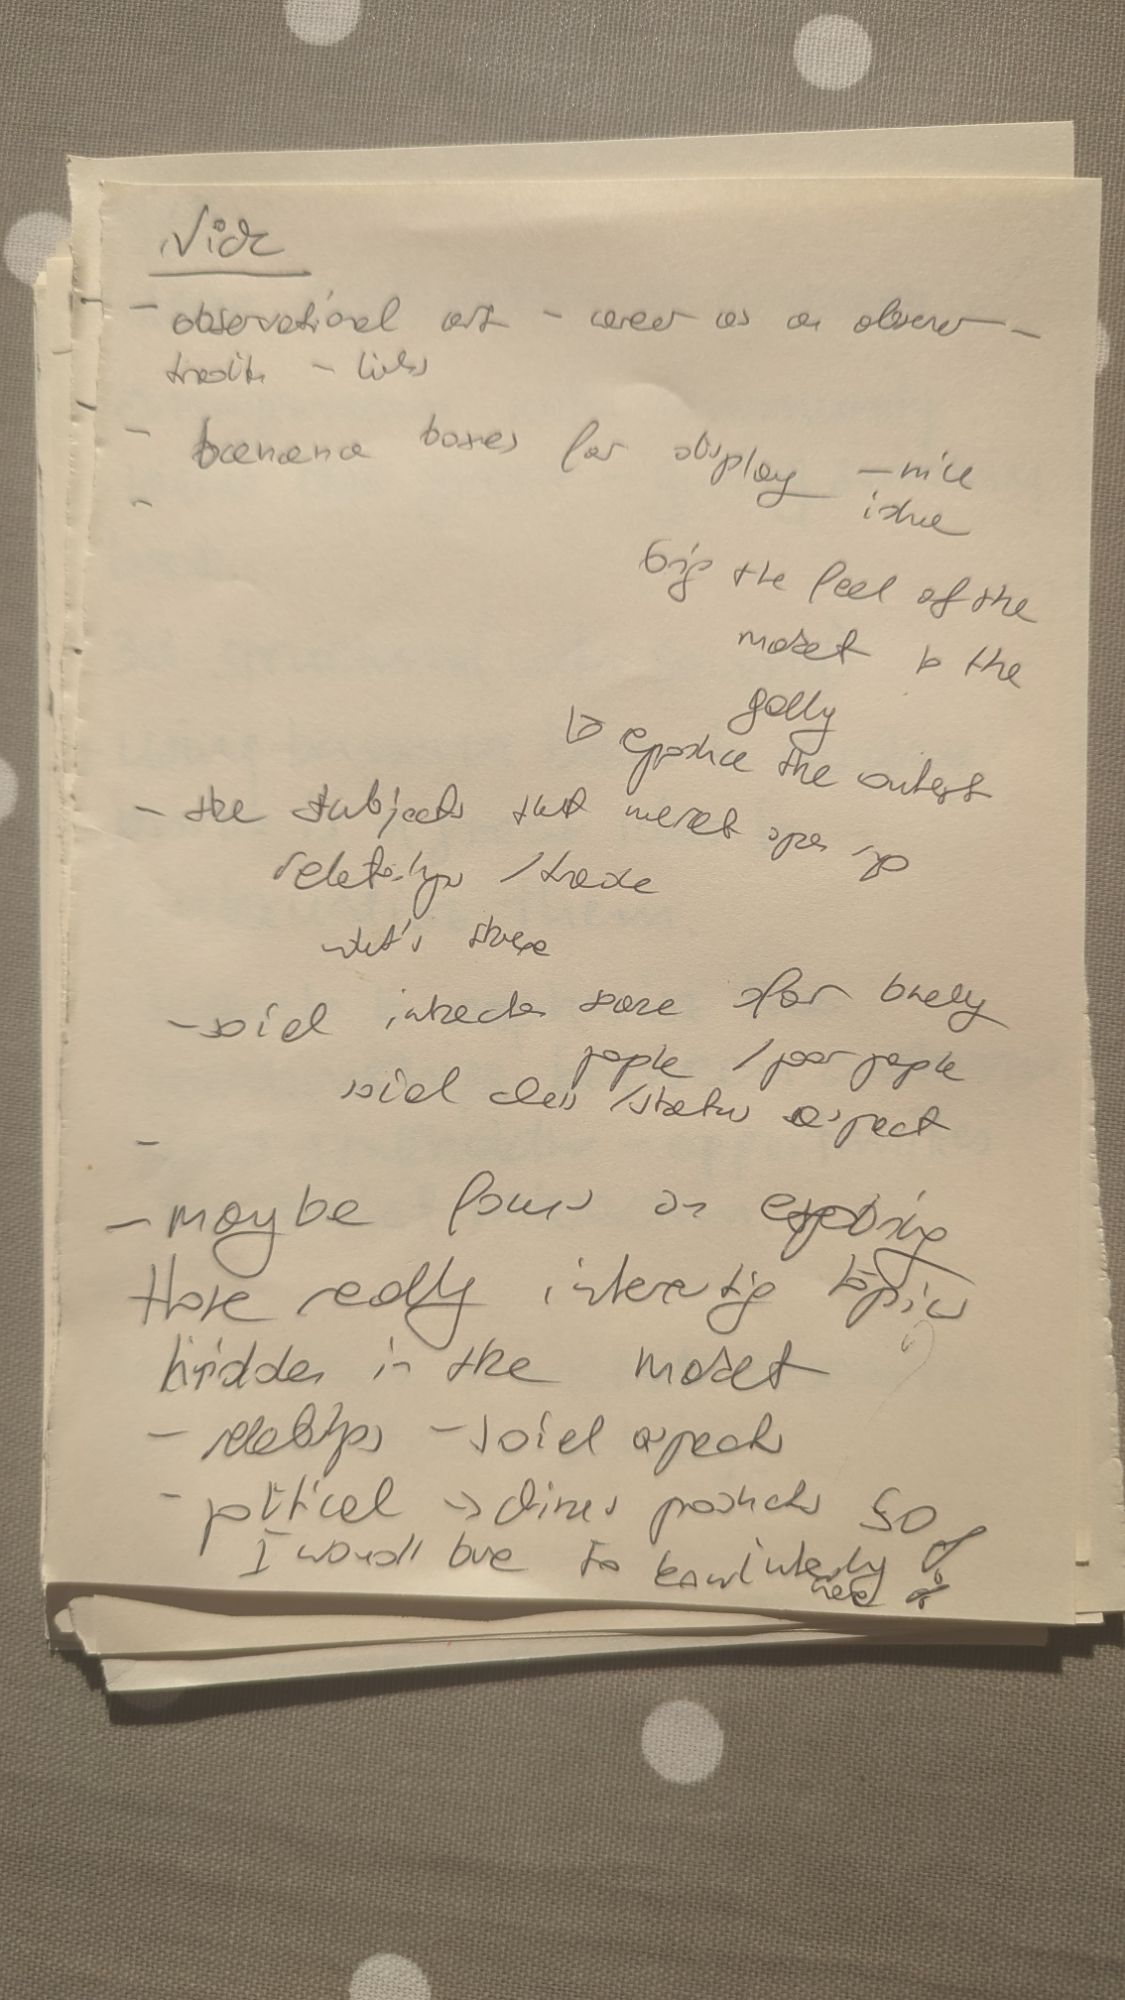 - observational art - career as an observer -
- links
- banana boxes for display - nice
idea
bring the feel of the
market to the
gallery
the context
- the subjects that market opens up
relationships / trade
what's there
- social space for lonely
people / poor people
social class / status aspect
-
- maybe focus on exploring
those really interesting topics
hidden in the market
- relationships - social aspects
- political → chinese products 50 %
I would love to